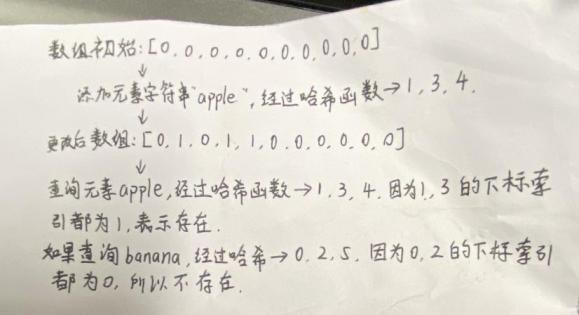 数组初始:[0.0.0.0.0.0.0.0.0.0]
↓
添加元素字符串"apple",经过哈希函数→1,3,4.
↓
更改后数组:[0.1.0.1.1.0.0.0.0.0.0]
↓
查询元素apple,经过哈希函数→1,3,4.因为1,3的下标索
引都为1,表示存在.
如果查询banana,经过哈希→0,2,5.因为0,2的下标索引
都为0,所以不存在.